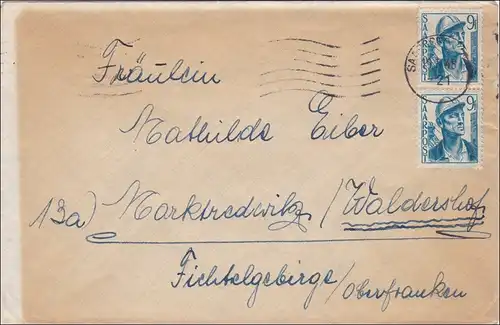 SAARPOST 9F
SAARPOST 9F
21
Fräulein
Mathilde Eiber
13a) Marktredwitz/Waldershof
Fichtelgebirge/Oberfranken